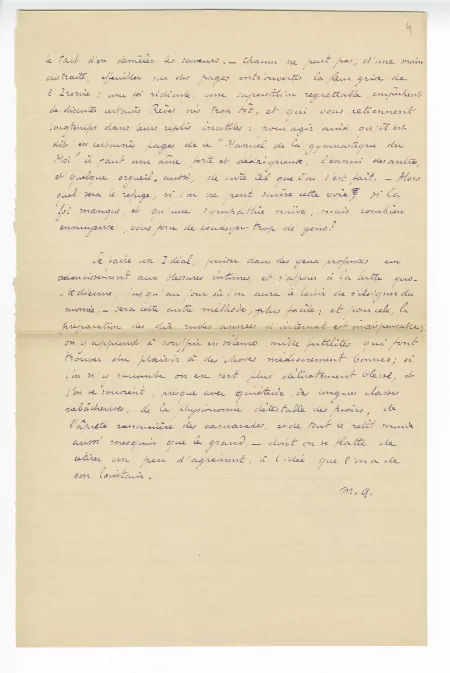 4
le tact d'en démêler les saveurs. — Chacun ne peut pas, d'une main
distraite, effeuiller sur des pages entrouvertes la fleur grise de
l'Ironie : une foi ridicule, une superstition regrettable empêchent
de discuter certains Rêves nés trop tôt, et qui vous retiennent
longtemps dans leurs replis : pour agir ainsi qu'il est
dit en certaines pages de ce "Manuel de la gymnastique du
Moi" il faut une âme forte et dédaigneuse, l'ennui des autres,
et quelque orgueil, aussi, de vivre tel que l'on s'est fait. — Alors
quel sera le refuge, si l'on ne peut suivre cette voie si la
foi manque, et qu'une sympathie naïve, mais combien
ennuyeuse, vous force de coudoyer trop de gens ?
Se faire un Idéal, puiser dans des yeux profonds un
adoucissement aux blessures intimes, et s'affiner à la lutte quo-
tidienne, jusqu'au jour où l'on aura le loisir de s'éloigner du
monde, — sera cette autre méthode, plus facile ; et pour cela, la
préparation des dix rudes années d'internat est indispensable ;
on y apprend à souffrir en silence mille futilités qui font
trouver du plaisir à des choses médiocrement bonnes ; si
l'on n'y succombe on en sort plus délicatement blessé, et
l'on se souvient, presque avec quiétude, de longues classes
rabâcheuses, de la physionomie détestable des pions, de
l'âpreté rancunière des camarades, et de tout ce petit monde
aussi mesquin que le grand, — dont on se flatte de
retirer un peu d'agrément, à l'idée que l'on a de
son lointain.
M. A.